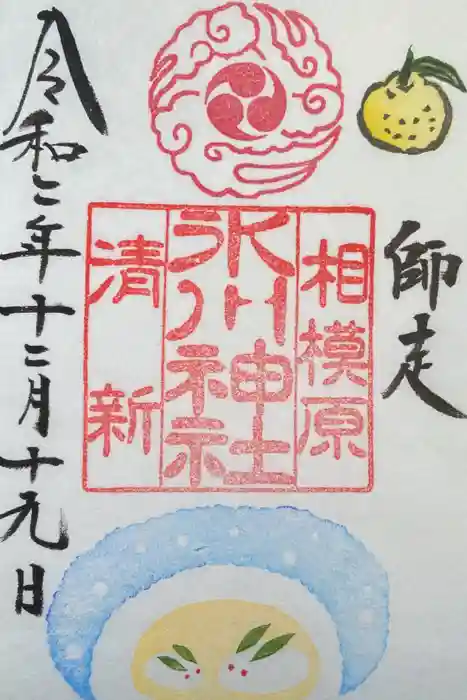 師走
相模原
氷川神社
清新
令和二年十二月十九日